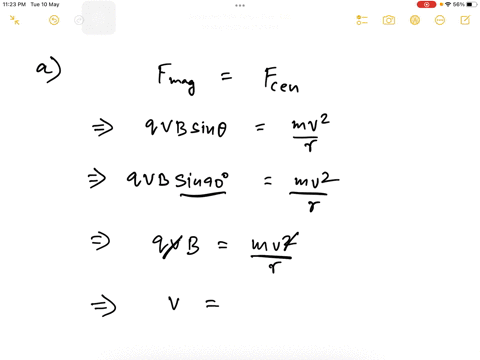 11:23 PM Tue 10 May
56%
a) F_mag = F_cen
⇒ qVB sinθ = mv²/r
⇒ qVB sin90° = mv²/r
⇒ qVB = mv²/r
⇒ V =